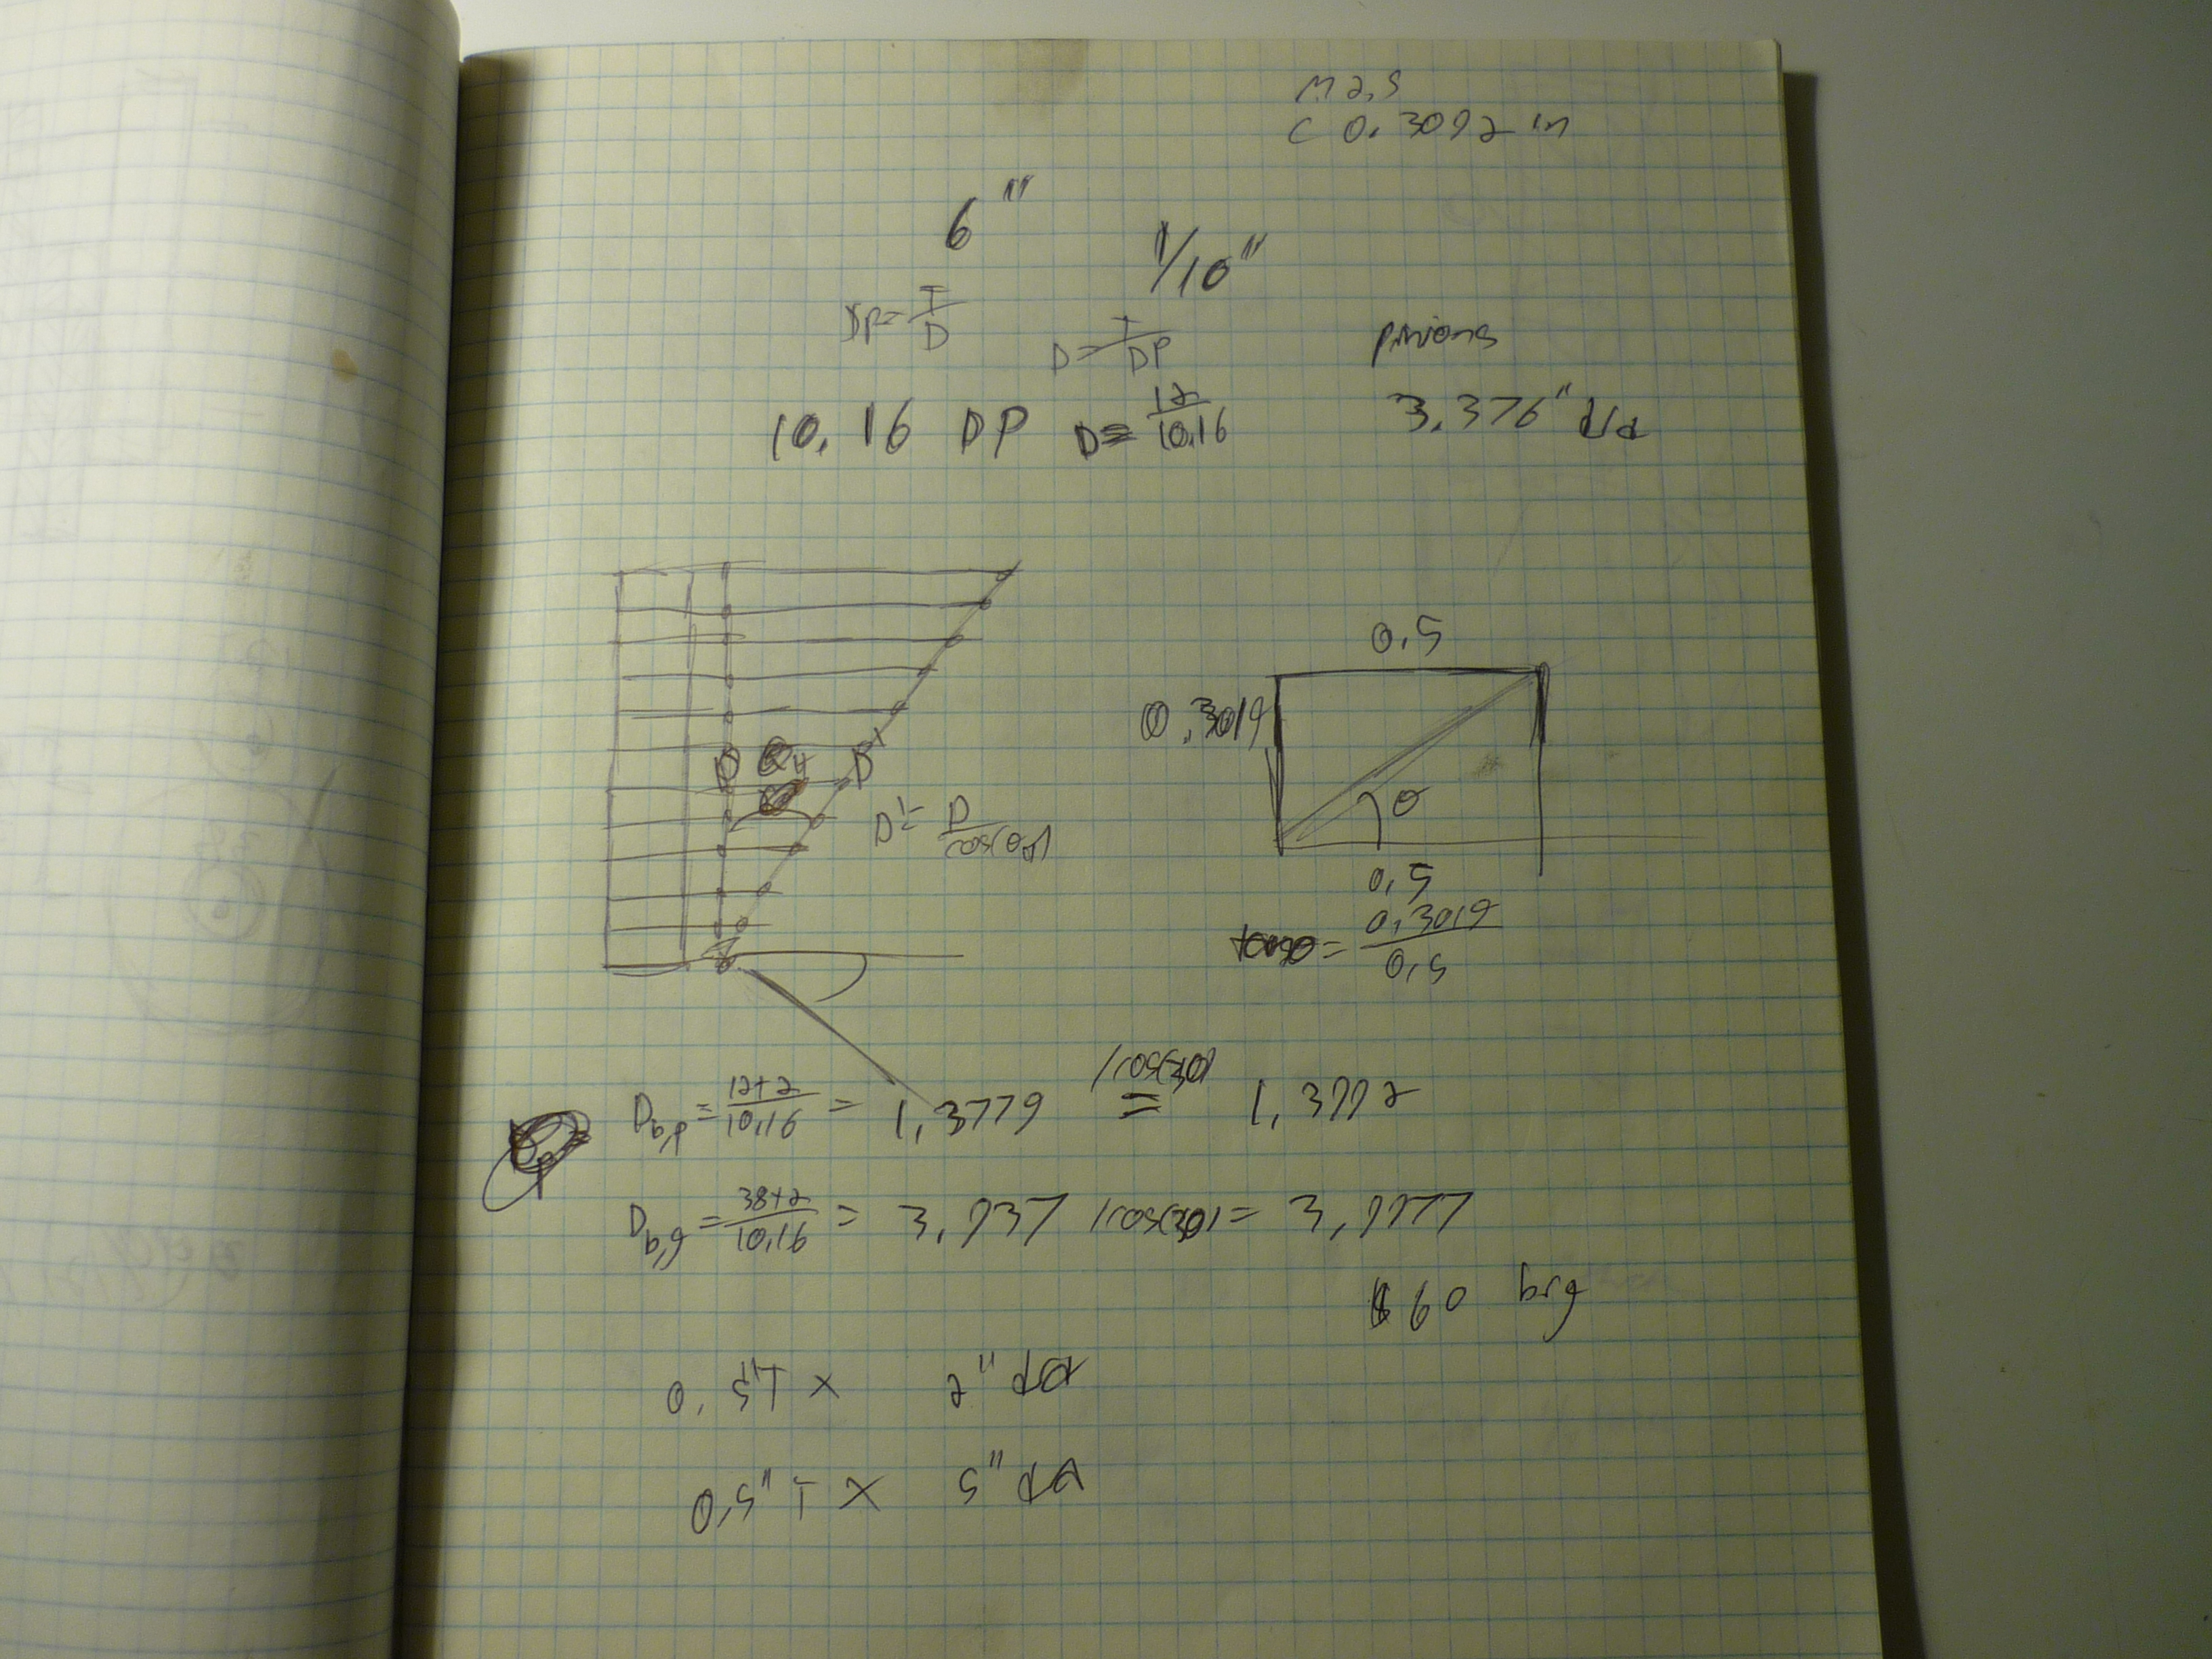 M 2.5
C 0.3092 in
6"
1/10"
DP = T/D
D = T/DP
pinions
10.16 DP D = 12/10.16
3.376" dia
0.5
0.3019
D D'
D' = D/cos(
θ
0.5
tanθ = 0.3019/0.5
Do,p = 12+2/10.16 = 1.3779 /cos(10) = 1.3992
Do,g = 38+2/10.16 = 3.937 /cos(10) = 3.9977
$60 brg
0.5" T x 2" dia
0.5" T x 5" dia